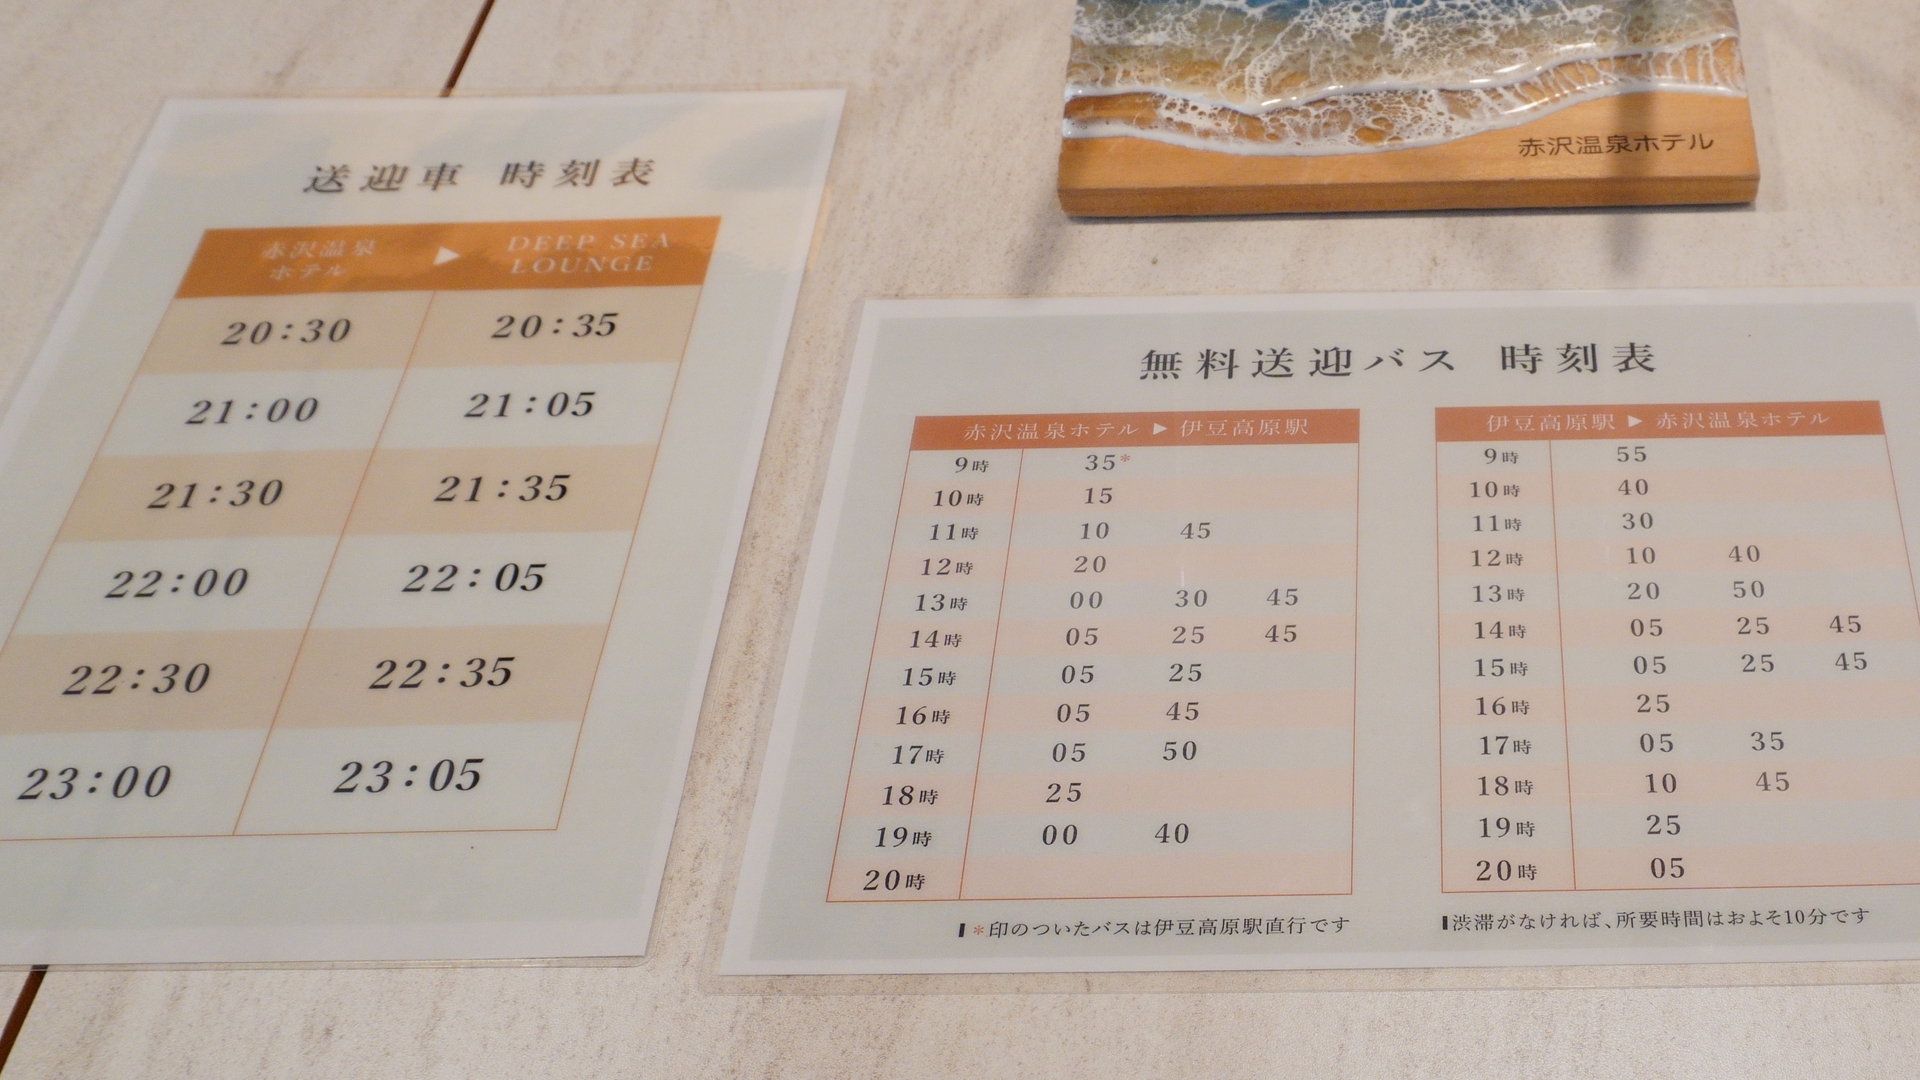 赤沢温泉ホテル
送迎車 時刻表
赤沢温泉
ホテル
▶
DEEP SEA
LOUNGE
20:30 20:35
21:00 21:05
21:30 21:35
22:00 22:05
22:30 22:35
23:00 23:05
無料送迎バス 時刻表
赤沢温泉ホテル ▶ 伊豆高原駅
9時 35*
10時 15
11時 10 45
12時 20
13時 00 30 45
14時 05 25 45
15時 05 25
16時 05 45
17時 05 50
18時 25
19時 00 40
20時
*印のついたバスは伊豆高原駅直行です
伊豆高原駅 ▶ 赤沢温泉ホテル
9時 55
10時 40
11時 30
12時 10 40
13時 20 50
14時 05 25 45
15時 05 25 45
16時 25
17時 05 35
18時 10 45
19時 25
20時 05
渋滞がなければ、所要時間はおよそ10分です